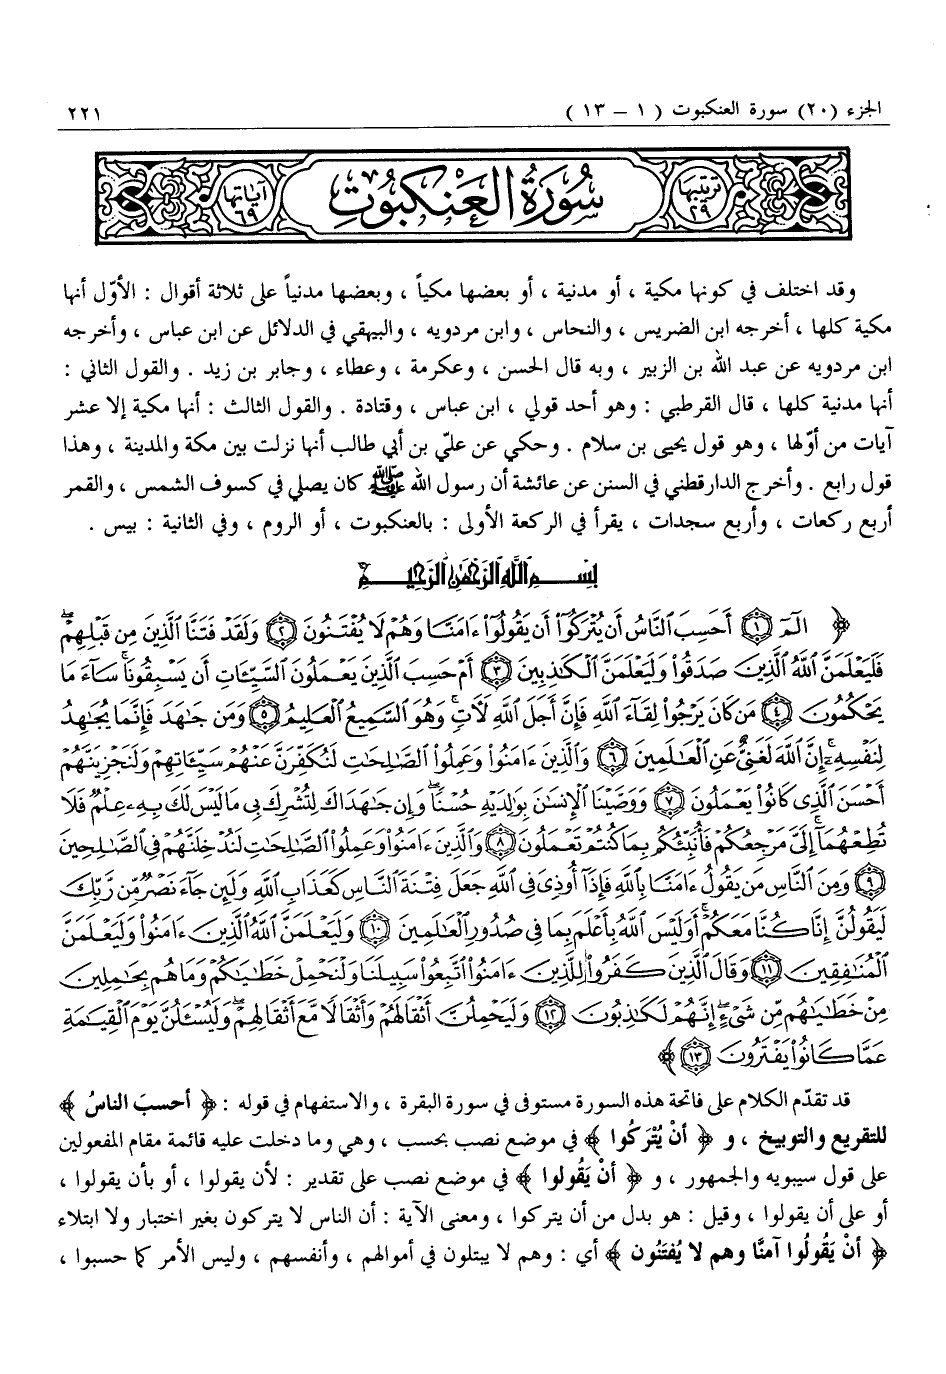 الجزء (٢٠) سورة العنكبوت ( ١ – ١٣ ) ٢٢١
ترتيبها ٢٩ سُورَةُ العَنكبُوتِ آياتها ٦٩
وقد اختلف في كونها مكية ، أو مدنية ، أو بعضها مكياً ، وبعضها مدنياً على ثلاثة أقوال : الأوّل أنها
مكية كلها ، أخرجه ابن الضريس ، والنحاس ، وابن مردويه ، والبيهقي في الدلائل عن ابن عباس ، وأخرجه
ابن مردويه عن عبد الله بن الزبير ، وبه قال الحسن ، وعكرمة ، وعطاء ، وجابر بن زيد . والقول الثاني :
أنها مدنية كلها ، قال القرطبي : وهو أحد قولي ، ابن عباس ، وقتادة . والقول الثالث : أنها مكية إلا عشر
آيات من أوّلها ، وهو قول يحيى بن سلام . وحكي عن عليّ بن أبي طالب أنها نزلت بين مكة والمدينة ، وهذا
قول رابع . وأخرج الدارقطني في السنن عن عائشة أن رسول الله ﷺ كان يصلي في كسوف الشمس ، والقمر
أربع ركعات ، وأربع سجدات ، يقرأ في الركعة الأولى : بالعنكبوت ، أو الروم ، وفي الثانية : بيس .
بِسْمِ اللَّهِ الرَّحْمَٰنِ الرَّحِيمِ
﴿ الٓمٓ ١ أَحَسِبَ ٱلنَّاسُ أَن يُتْرَكُوٓا۟ أَن يَقُولُوٓا۟ ءَامَنَّا وَهُمْ لَا يُفْتَنُونَ ٢ وَلَقَدْ فَتَنَّا ٱلَّذِينَ مِن قَبْلِهِمْ ۖ
فَلَيَعْلَمَنَّ ٱللَّهُ ٱلَّذِينَ صَدَقُوا۟ وَلَيَعْلَمَنَّ ٱلْكَٰذِبِينَ ٣ أَمْ حَسِبَ ٱلَّذِينَ يَعْمَلُونَ ٱلسَّيِّـَٔاتِ أَن يَسْبِقُونَا ۚ سَآءَ مَا
يَحْكُمُونَ ٤ مَن كَانَ يَرْجُوا۟ لِقَآءَ ٱللَّهِ فَإِنَّ أَجَلَ ٱللَّهِ لَآتٍ ۚ وَهُوَ ٱلسَّمِيعُ ٱلْعَلِيمُ ٥ وَمَن جَٰهَدَ فَإِنَّمَا يُجَٰهِدُ
لِنَفْسِهِۦٓ ۚ إِنَّ ٱللَّهَ لَغَنِىٌّ عَنِ ٱلْعَٰلَمِينَ ٦ وَٱلَّذِينَ ءَامَنُوا۟ وَعَمِلُوا۟ ٱلصَّٰلِحَٰتِ لَنُكَفِّرَنَّ عَنْهُمْ سَيِّـَٔاتِهِمْ وَلَنَجْزِيَنَّهُمْ
أَحْسَنَ ٱلَّذِى كَانُوا۟ يَعْمَلُونَ ٧ وَوَصَّيْنَا ٱلْإِنسَٰنَ بِوَٰلِدَيْهِ حُسْنًا ۖ وَإِن جَٰهَدَاكَ لِتُشْرِكَ بِى مَا لَيْسَ لَكَ بِهِۦ عِلْمٌ فَلَا
تُطِعْهُمَآ ۚ إِلَىَّ مَرْجِعُكُمْ فَأُنَبِّئُكُم بِمَا كُنتُمْ تَعْمَلُونَ ٨ وَٱلَّذِينَ ءَامَنُوا۟ وَعَمِلُوا۟ ٱلصَّٰلِحَٰتِ لَنُدْخِلَنَّهُمْ فِى ٱلصَّٰلِحِينَ
٩ وَمِنَ ٱلنَّاسِ مَن يَقُولُ ءَامَنَّا بِٱللَّهِ فَإِذَآ أُوذِىَ فِى ٱللَّهِ جَعَلَ فِتْنَةَ ٱلنَّاسِ كَعَذَابِ ٱللَّهِ وَلَئِن جَآءَ نَصْرٌ مِّن رَّبِّكَ
لَيَقُولُنَّ إِنَّا كُنَّا مَعَكُمْ ۚ أَوَلَيْسَ ٱللَّهُ بِأَعْلَمَ بِمَا فِى صُدُورِ ٱلْعَٰلَمِينَ ١٠ وَلَيَعْلَمَنَّ ٱللَّهُ ٱلَّذِينَ ءَامَنُوا۟ وَلَيَعْلَمَنَّ
ٱلْمُنَٰفِقِينَ ١١ وَقَالَ ٱلَّذِينَ كَفَرُوا۟ لِلَّذِينَ ءَامَنُوا۟ ٱتَّبِعُوا۟ سَبِيلَنَا وَلْنَحْمِلْ خَطَٰيَٰكُمْ وَمَا هُم بِحَٰمِلِينَ
مِنْ خَطَٰيَٰهُم مِّن شَىْءٍ ۖ إِنَّهُمْ لَكَٰذِبُونَ ١٢ وَلَيَحْمِلُنَّ أَثْقَالَهُمْ وَأَثْقَالًا مَّعَ أَثْقَالِهِمْ ۖ وَلَيُسْـَٔلُنَّ يَوْمَ ٱلْقِيَٰمَةِ
عَمَّا كَانُوا۟ يَفْتَرُونَ ١٣ ﴾
قد تقدّم الكلام على فاتحة هذه السورة مستوفى في سورة البقرة ، والاستفهام في قوله : ﴿ أحسبَ الناسُ ﴾
للتقريع والتوبيخ ، و ﴿ أنْ يُتْرَكُوا ﴾ في موضع نصب بحسب ، وهي وما دخلت عليه قائمة مقام المفعولين
على قول سيبويه والجمهور ، و ﴿ أنْ يَقُولوا ﴾ في موضع نصب على تقدير : لأن يقولوا ، أو بأن يقولوا ،
أو على أن يقولوا ، وقيل : هو بدل من أن يتركوا ، ومعنى الآية : أن الناس لا يتركون بغير اختبار ولا ابتلاء
﴿ أنْ يَقُولُوا آمنَّا وهم لا يُفتَنُون ﴾ أي : وهم لا يبتلون في أموالهم ، وأنفسهم ، وليس الأمر كما حسبوا ،